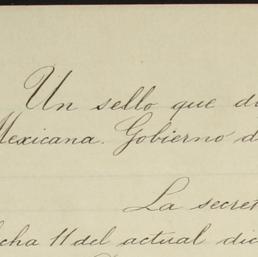 Un sello que di
Mexicana. Gobierno d
La secret
cha 11 del actual dic